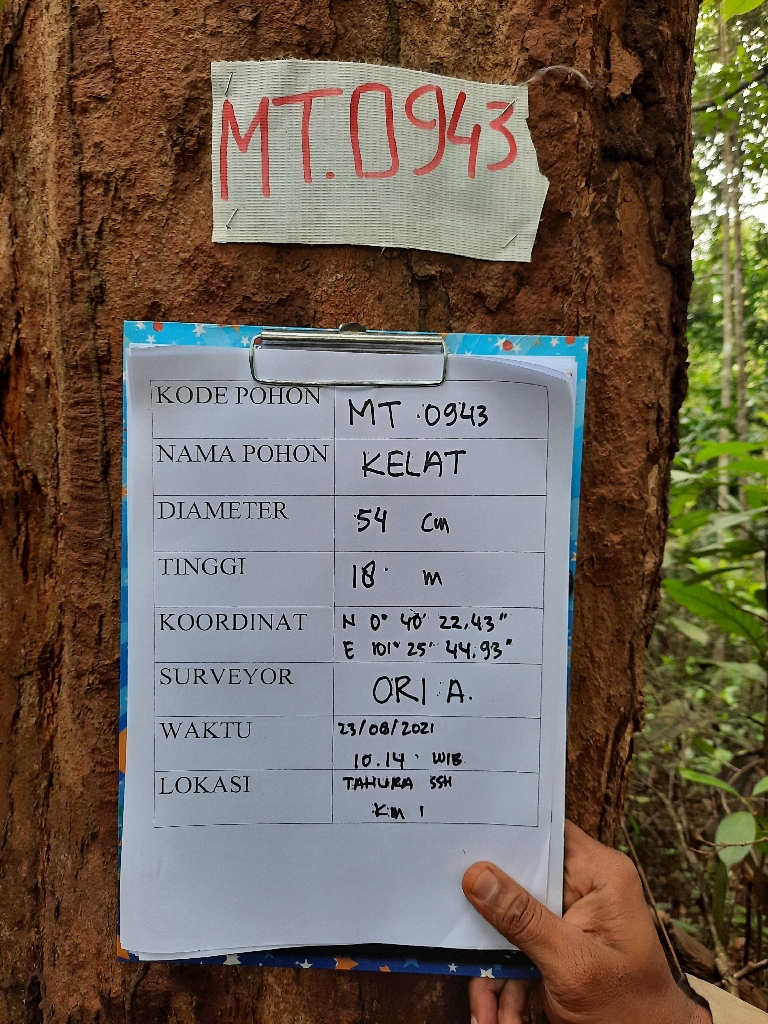 MT.0943
KODE POHON MT 0943
NAMA POHON KELAT
DIAMETER 54 cm
TINGGI 18 m
KOORDINAT N 0° 40' 22,43"
E 101° 25' 44,93"
SURVEYOR ORI A.
WAKTU 23/08/2021
10.14 WIB
LOKASI TAHURA SSH
KM 1